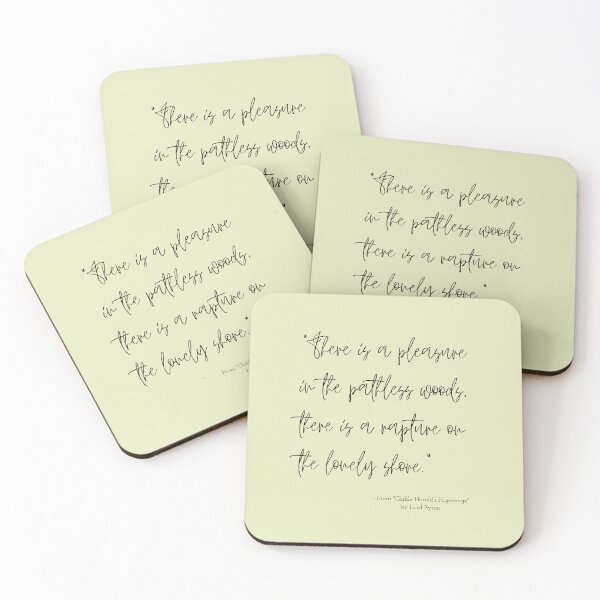 "There is a pleasure
in the pathless woods,
"There is a pleasure
in the pathless woods,
there is a rapture on
the lonely shore."
"There is a pleasure
in the pathless woods,
there is a rapture on
the lonely shore."
"There is a pleasure
in the pathless woods,
there is a rapture on
the lonely shore."
- From "Childe Harold's Pilgrimage"
by Lord Byron